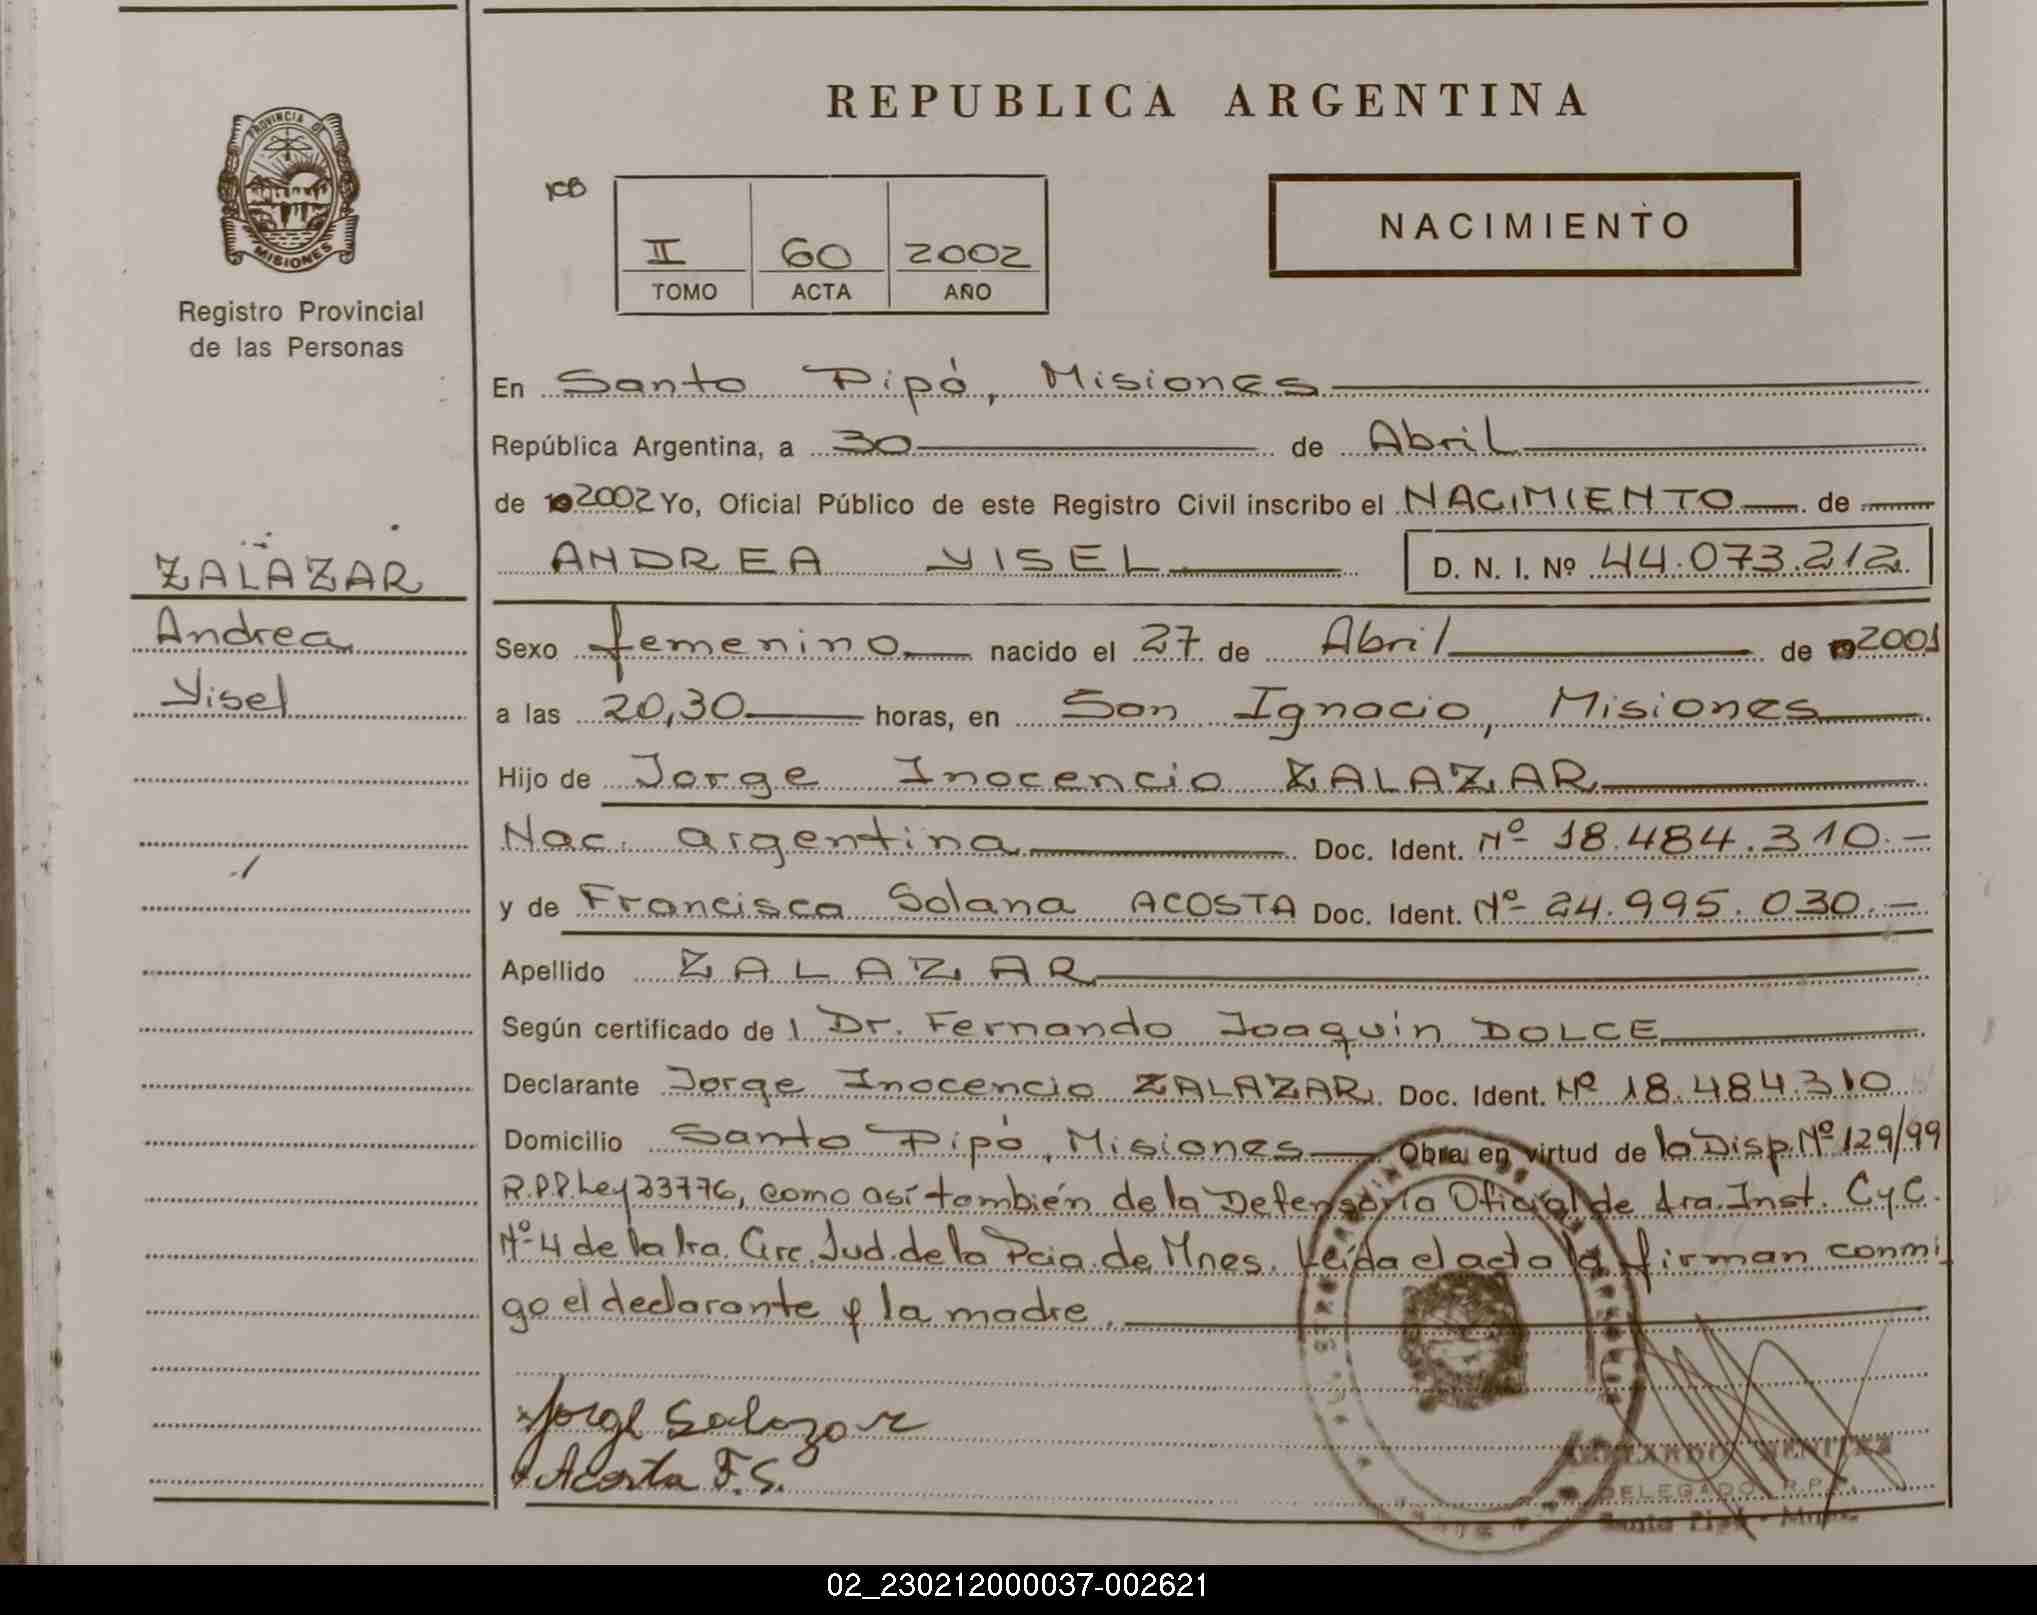 REPUBLICA ARGENTINA
PROVINCIA DE
MISIONES
Registro Provincial
de las Personas
II 60 2002
TOMO ACTA AÑO
NACIMIENTO
En Santo Pipó, Misiones
República Argentina, a 30 de Abril
de 2002 Yo, Oficial Público de este Registro Civil inscribo el NACIMIENTO de
ANDREA YISEL D. N. I. Nº 44.073.212
ZALAZAR
Andrea
Yisel
Sexo femenino nacido el 27 de Abril de 2001
a las 20,30 horas, en San Ignacio, Misiones
Hijo de Jorge Inocencio ZALAZAR
Nac. argentina Doc. Ident. Nº 18.484.310.-
y de Francisca Solana ACOSTA Doc. Ident. Nº 24.995.030.-
Apellido ZALAZAR
Según certificado de l Dr. Fernando Joaquín DOLCE
Declarante Jorge Inocencio ZALAZAR. Doc. Ident. Nº 18.484.310
Domicilio Santo Pipó, Misiones Obra en virtud de la Disp. Nº 129/99
R.P.P. Ley 23776, como así también de la Defensoría Oficial de 1ra. Inst. C y C.
Nº 4 de la 1ra. Circ. Jud. de la Pcia. de Mnes. Leída el acta la firman conmi
go el declarante y la madre.
Jorge Salazar
Acosta F.S.
DELEGADO R.P.
Santo Pipó - Mnes.
02_230212000037-002621